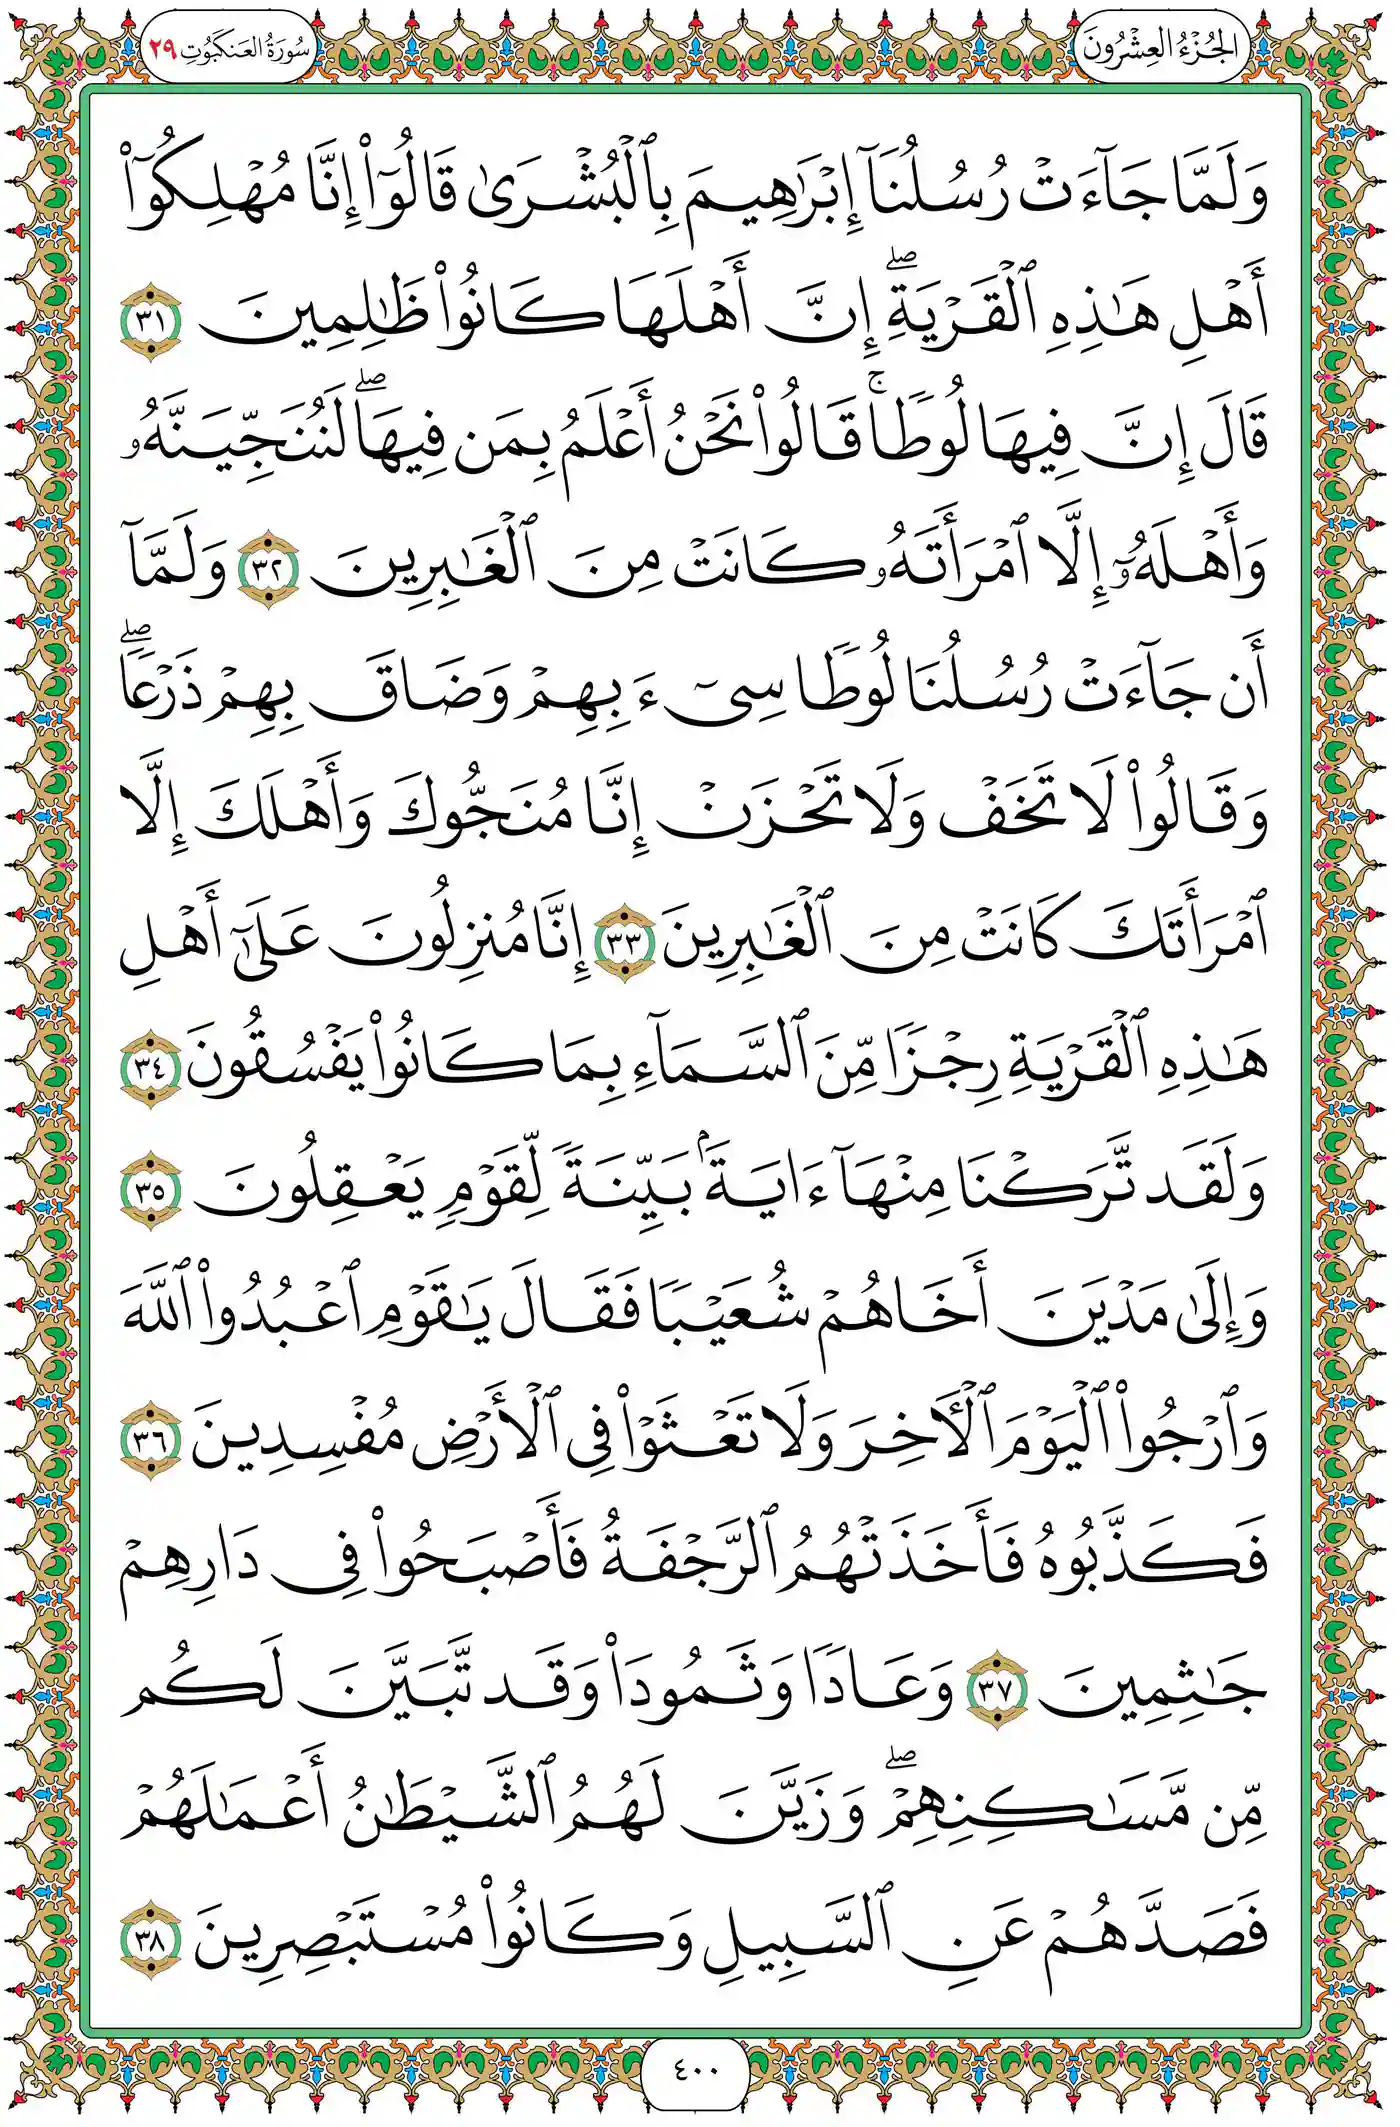 الجُزْءُ العِشْرُونَ
سُورَةُ العَنكَبُوتِ ٢٩
وَلَمَّا جَآءَتْ رُسُلُنَآ إِبْرَٰهِيمَ بِٱلْبُشْرَىٰ قَالُوٓا۟ إِنَّا مُهْلِكُوٓا۟
أَهْلِ هَٰذِهِ ٱلْقَرْيَةِۖ إِنَّ أَهْلَهَا كَانُوا۟ ظَٰلِمِينَ ٣١
قَالَ إِنَّ فِيهَا لُوطًاۚ قَالُوا۟ نَحْنُ أَعْلَمُ بِمَن فِيهَاۖ لَنُنَجِّيَنَّهُۥ
وَأَهْلَهُۥٓ إِلَّا ٱمْرَأَتَهُۥ كَانَتْ مِنَ ٱلْغَٰبِرِينَ ٣٢ وَلَمَّآ
أَن جَآءَتْ رُسُلُنَا لُوطًا سِىٓءَ بِهِمْ وَضَاقَ بِهِمْ ذَرْعًاۖ
وَقَالُوا۟ لَا تَخَفْ وَلَا تَحْزَنْ إِنَّا مُنَجُّوكَ وَأَهْلَكَ إِلَّا
ٱمْرَأَتَكَ كَانَتْ مِنَ ٱلْغَٰبِرِينَ ٣٣ إِنَّا مُنزِلُونَ عَلَىٰٓ أَهْلِ
هَٰذِهِ ٱلْقَرْيَةِ رِجْزًا مِّنَ ٱلسَّمَآءِ بِمَا كَانُوا۟ يَفْسُقُونَ ٣٤
وَلَقَد تَّرَكْنَا مِنْهَآ ءَايَةًۢ بَيِّنَةً لِّقَوْمٍ يَعْقِلُونَ ٣٥
وَإِلَىٰ مَدْيَنَ أَخَاهُمْ شُعَيْبًا فَقَالَ يَٰقَوْمِ ٱعْبُدُوا۟ ٱللَّهَ
وَٱرْجُوا۟ ٱلْيَوْمَ ٱلْأَخِرَ وَلَا تَعْثَوْا۟ فِى ٱلْأَرْضِ مُفْسِدِينَ ٣٦
فَكَذَّبُوهُ فَأَخَذَتْهُمُ ٱلرَّجْفَةُ فَأَصْبَحُوا۟ فِى دَارِهِمْ
جَٰثِمِينَ ٣٧ وَعَادًا وَثَمُودَا۟ وَقَد تَّبَيَّنَ لَكُم
مِّن مَّسَٰكِنِهِمْۖ وَزَيَّنَ لَهُمُ ٱلشَّيْطَٰنُ أَعْمَٰلَهُمْ
فَصَدَّهُمْ عَنِ ٱلسَّبِيلِ وَكَانُوا۟ مُسْتَبْصِرِينَ ٣٨
٤٠٠